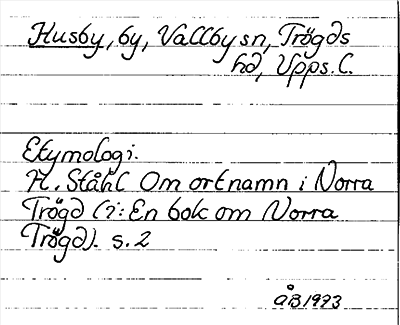 Husby, by, Vallby sn, Trögds
hd, Upps. l.
Etymologi.
H. Ståhl Om ortnamn i Norra
Trögd (i: En bok om Norra
Trögd). s. 2
ÅB 1973